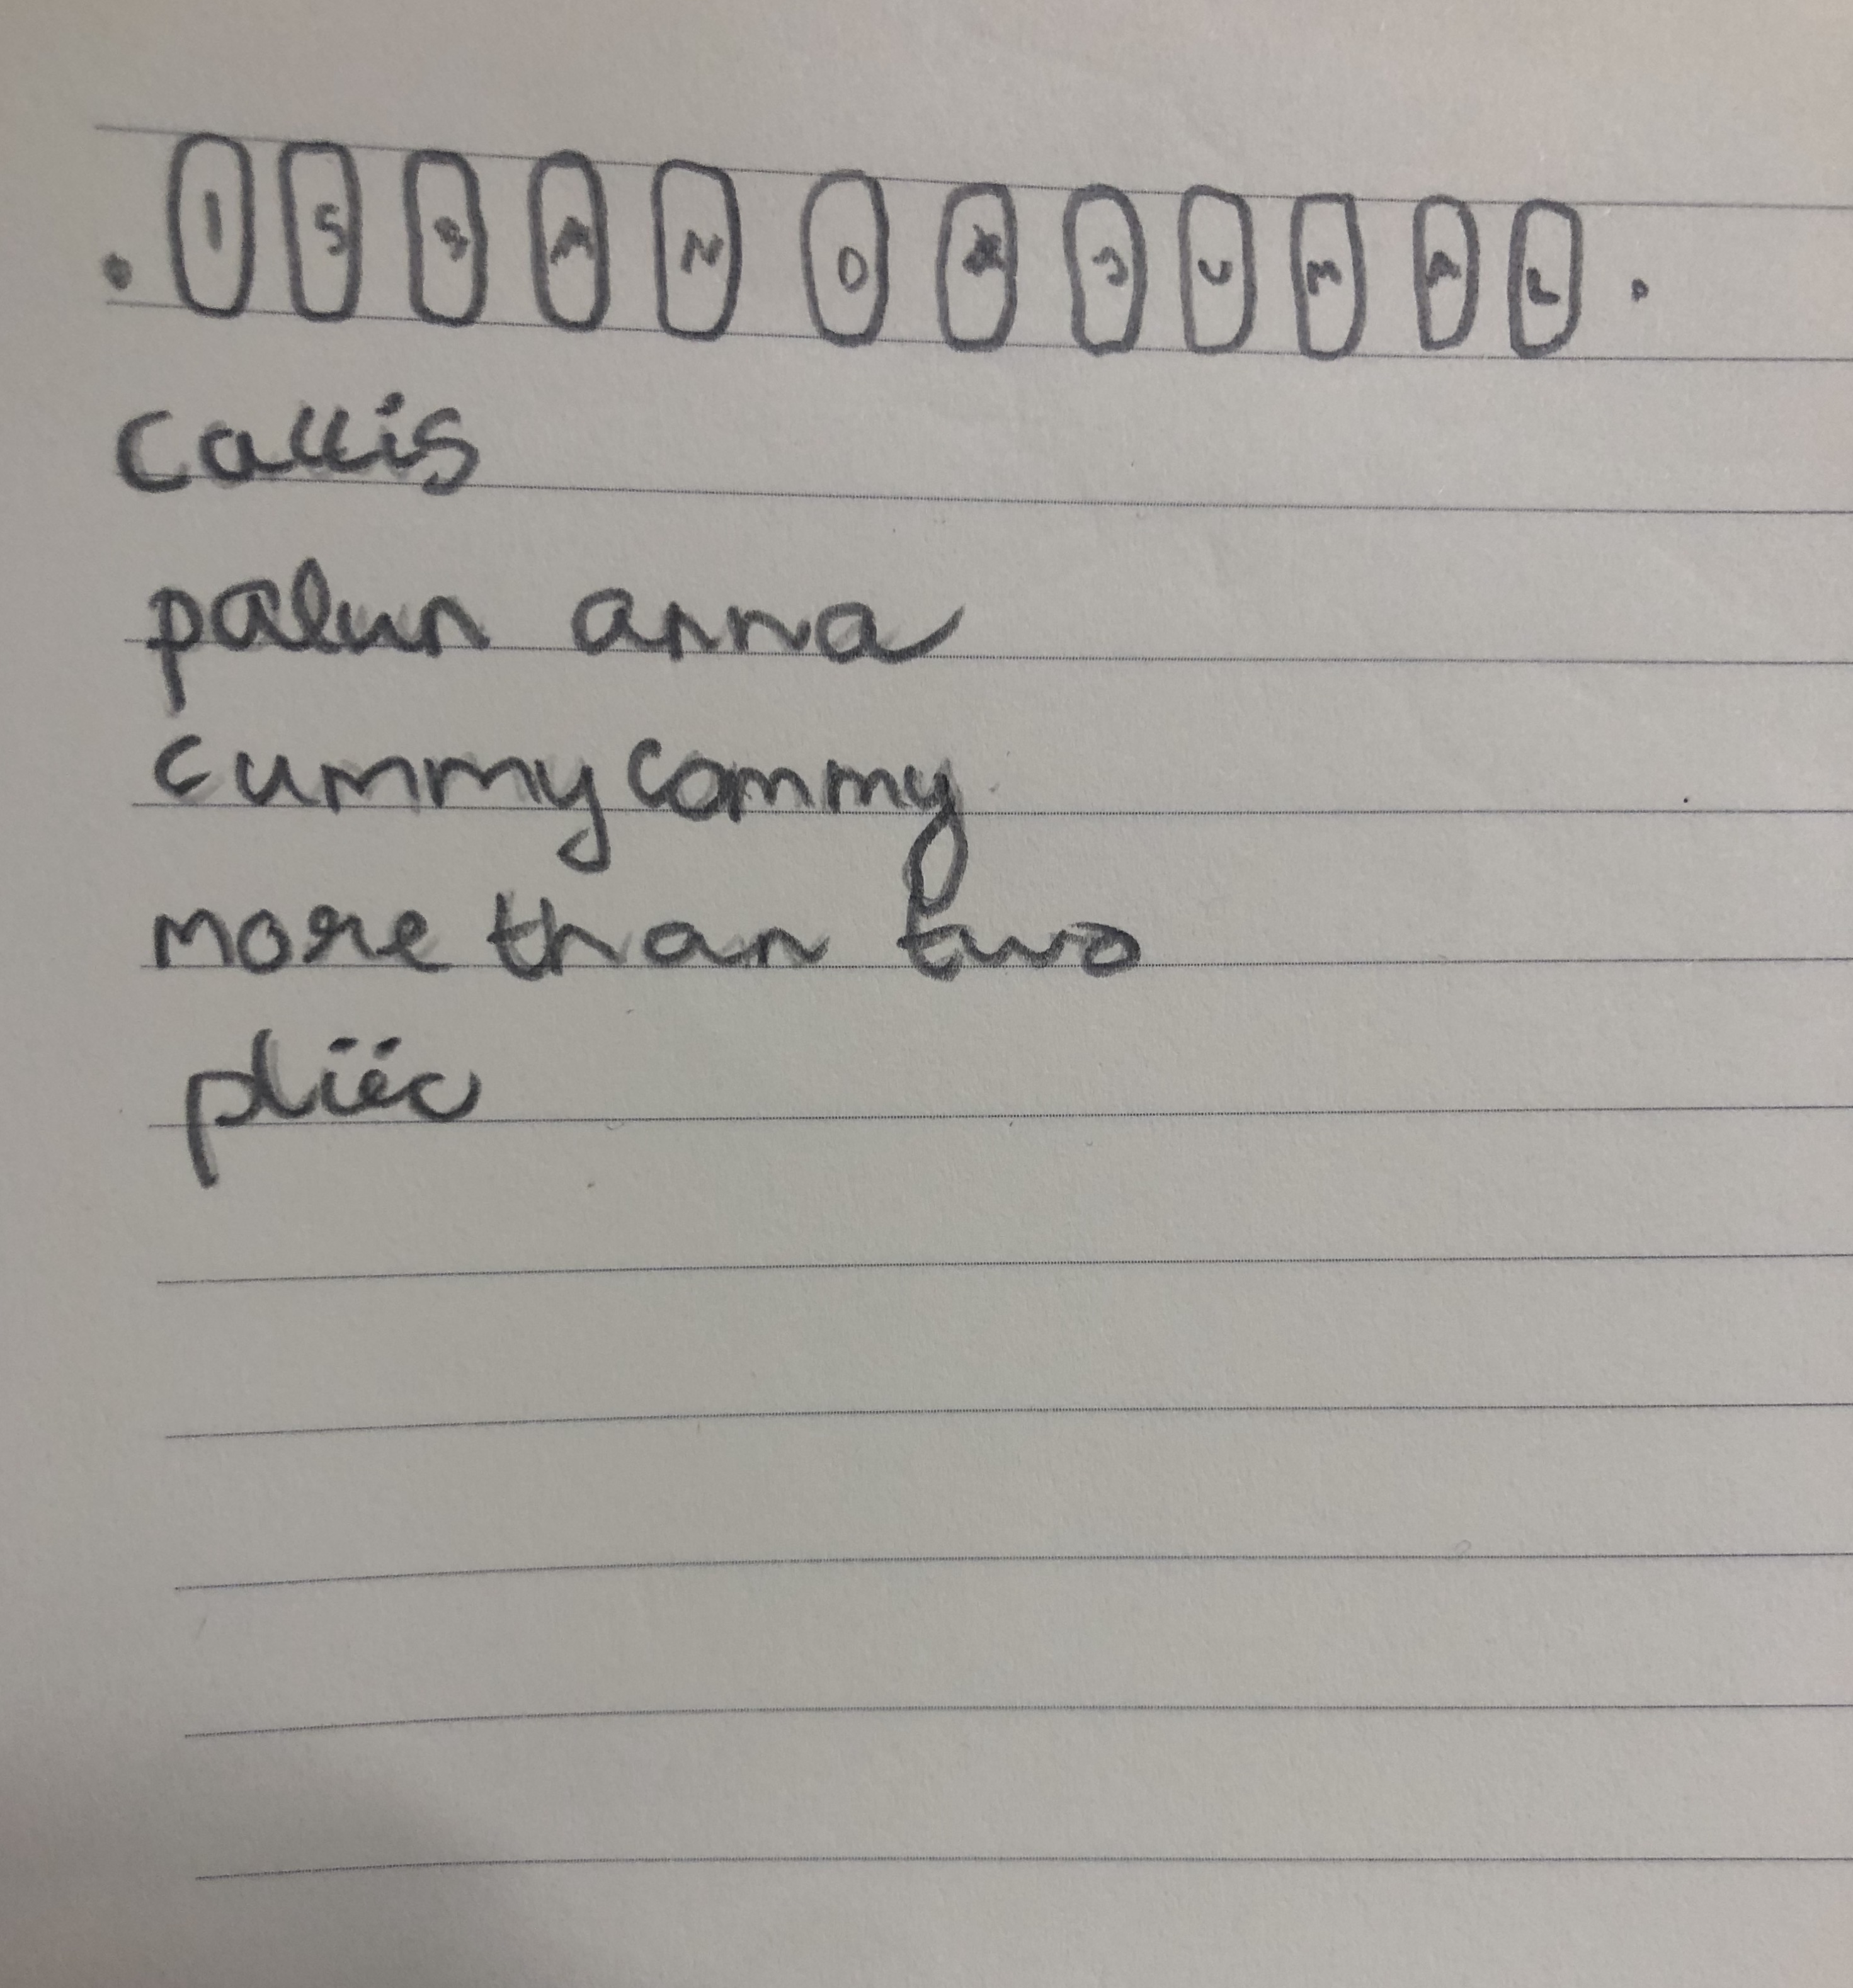 . I S B A N D * J U M A L .
Callis
palun anna
cummycommy
more than two
pliiéc